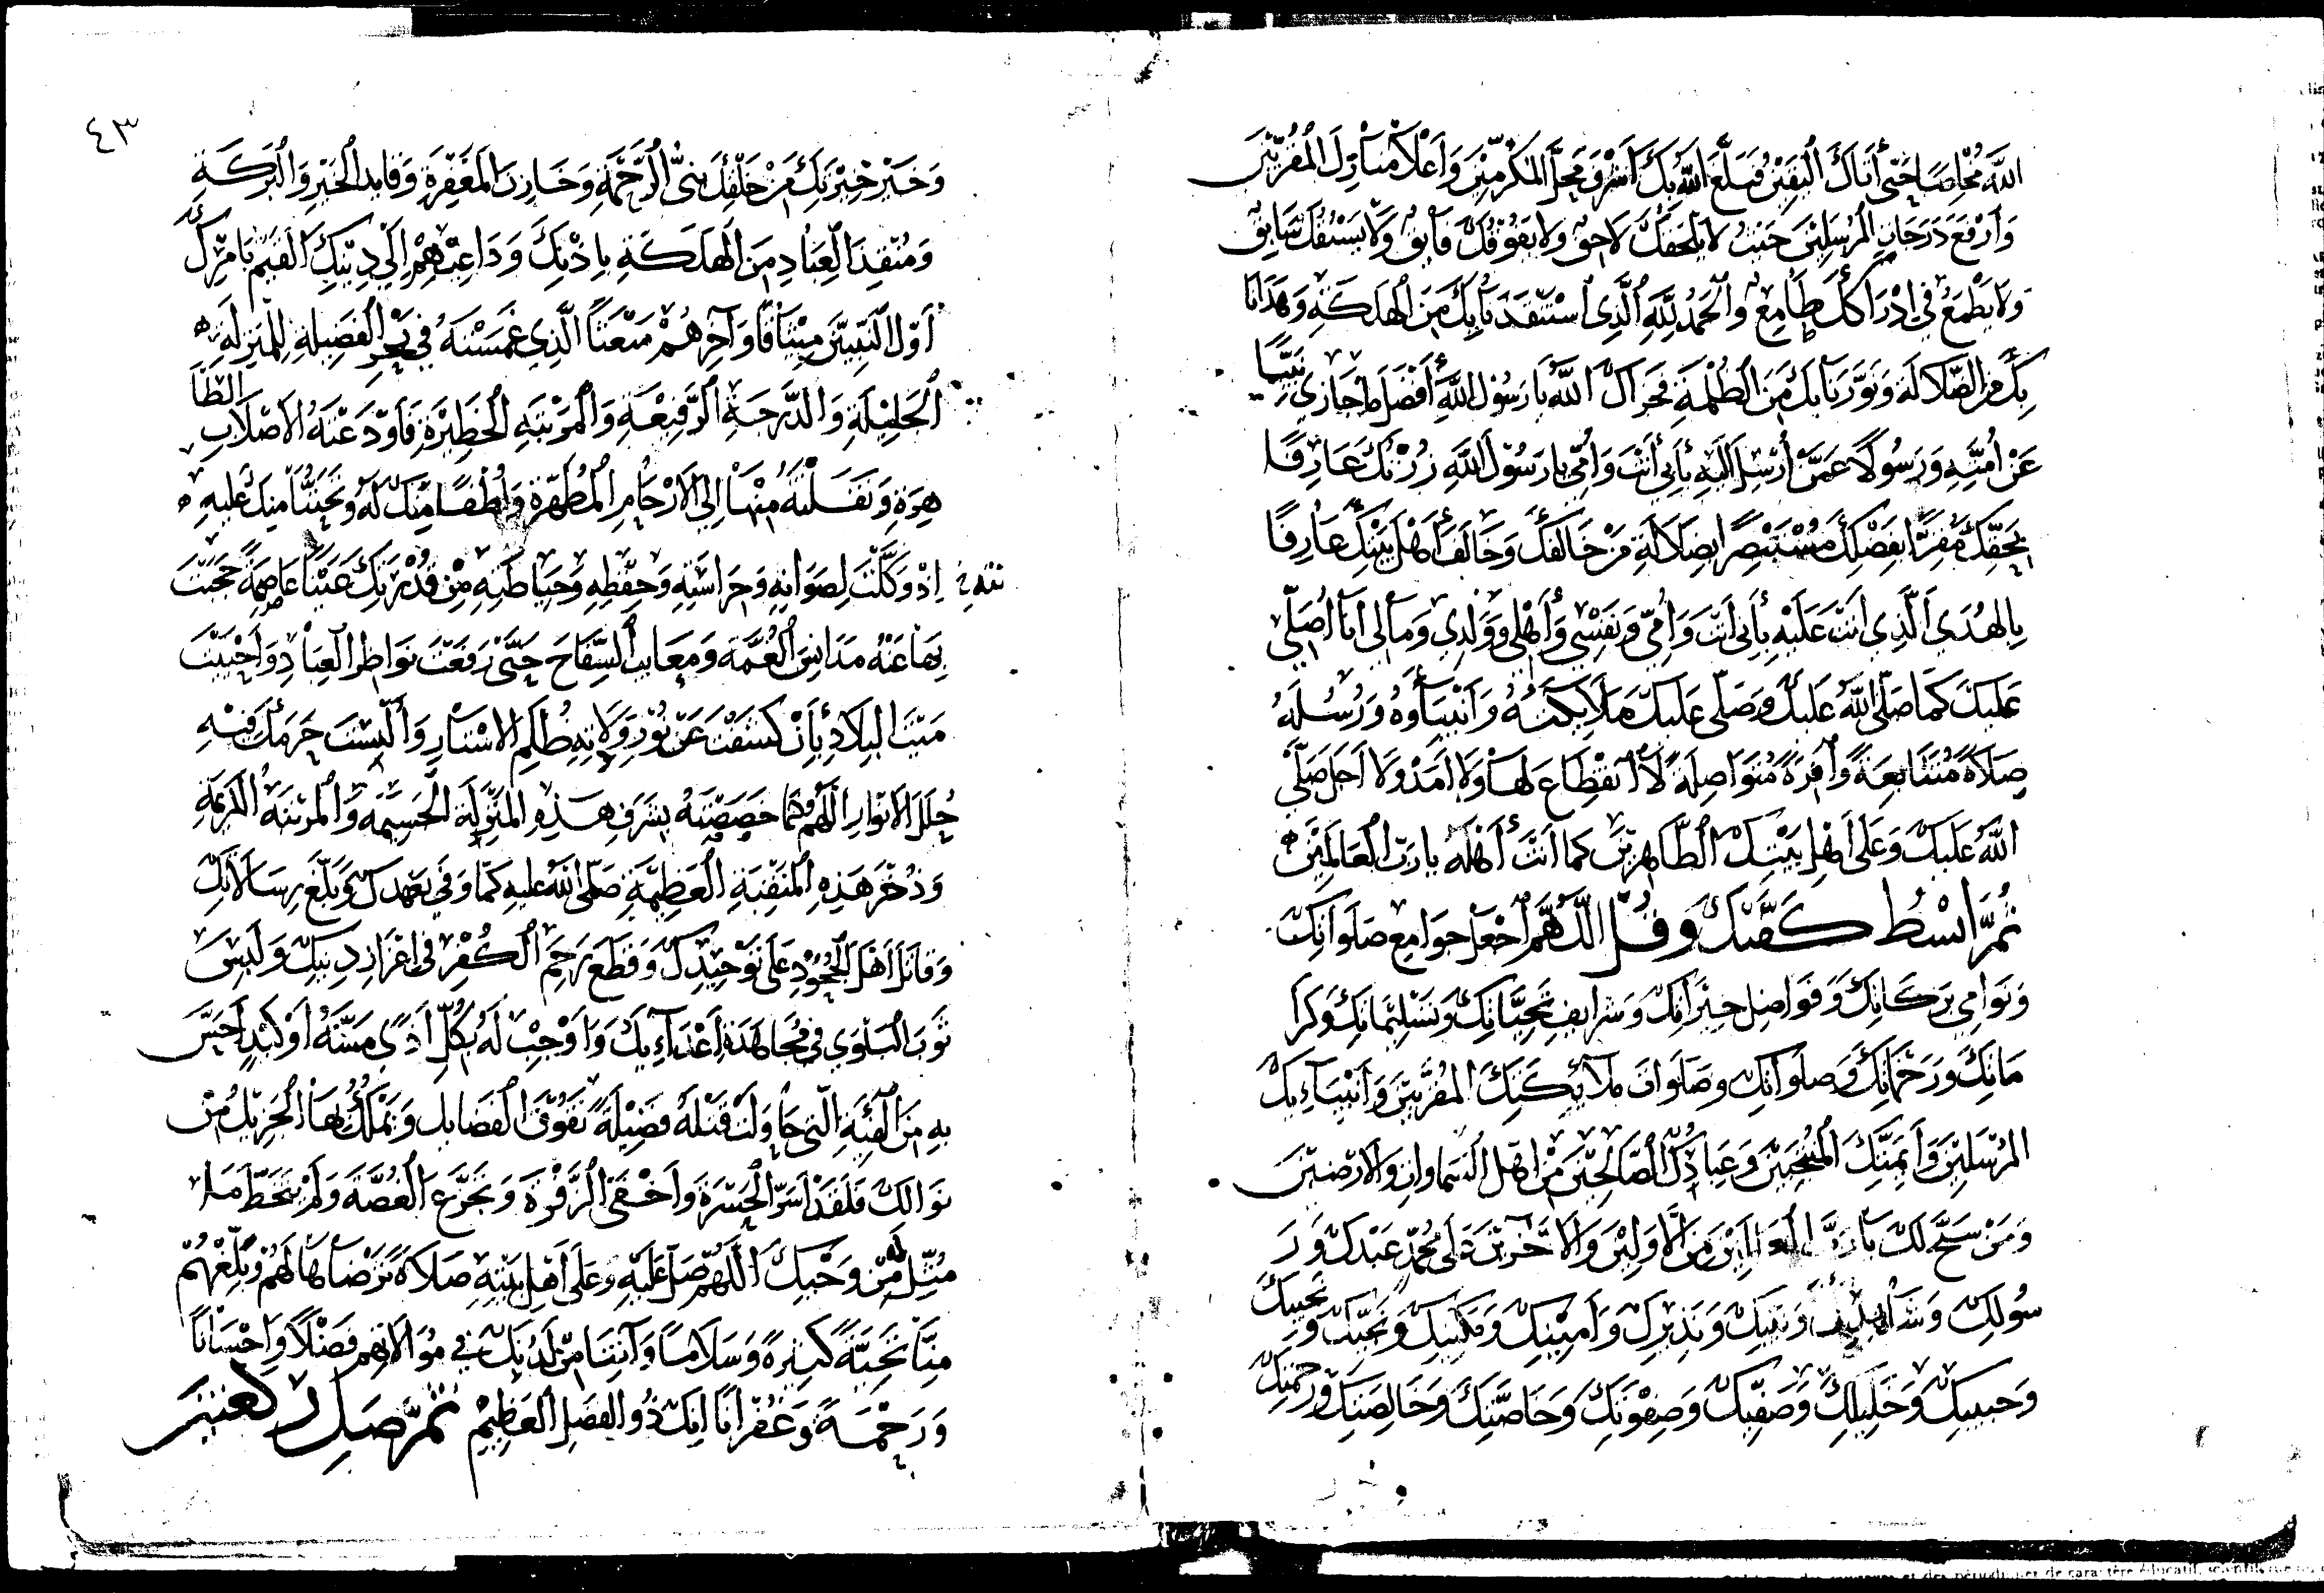 الله مخلصا حتى أتاك اليقين فبلغ الله بك أشرف محل المكرمين وأعلا منازل المقربين
وأرفع درجات المرسلين حيث لا يلحقك لاحق ولا يفوقك فائق ولا يسبقك سابق
ولا يطمع في إدراكك طامع والحمد لله الذي استنقذنا بك من الهلكة وهدانا
بك من الضلالة ونورنا بك من الظلمة فجزاك الله يا رسول الله أفضل ما جازى نبيا
عن أمته ورسولا عمن أرسل إليه بأبي أنت وأمي يا رسول الله زرتك عارفا
بحقك مقرا بفضلك مستبصرا بضلالة من خالفك وخالف أهل بيتك عارفا
بالهدى الذي أنت عليه بأبي أنت وأمي ونفسي وأهلي وولدي ومالي أنا أصلي
عليك كما صلى الله عليك وصلى عليك ملائكته وأنبياؤه ورسله
صلاة متتابعة وافرة متواصلة لا انقطاع لها ولا أمد ولا أجل صلى
الله عليك وعلى أهل بيتك الطاهرين كما أنت أهله يا رب العالمين
ثم ابسط كفيك وقل اللهم اجعل جوامع صلواتك
ونوامي بركاتك وفواضل خيراتك وشرايف تحياتك وتسليماتك وكرا
ماتك ورحماتك وصلواتك وصلوات ملائكتك المقربين وأنبيائك
المرسلين وأئمتك المنتجبين وعبادك الصالحين من أهل السماوات والأرضين
ومن سبح لك يا رب العالمين من الأولين والآخرين على محمد عبدك ور
سولك وشاهدك ونبيك ونذيرك وأمينك ومكينك ونجيك ونجيبك
وحبيبك وخليلك وصفيك وصفوتك وخاصتك وخالصتك ورحمتك
٤٣
وخير خيرتك من خلقك نبي الرحمة وخازن المغفرة وقايد الخير والبركة
ومنقذ العباد من الهلكة بإذنك وداعيهم إلى دينك القيم بأمرك
أول النبيين ميثاقا وآخرهم مبعثا الذي غمسته في بحر الفضيلة للمنزلة
الجليلة والدرجة الرفيعة والمرتبة الخطيرة فأودعته الأصلاب الطا
هرة ونقلته منها إلى الأرحام المطهرة لطفا منك له وتحننا منك عليه
إذ وكلت لصوانه وحراسته وحفظه وحياطته من قدرتك عينا عاصمة حجبت
بها عنه مدانس العمه ومعايب السفاح حتى رفعت نواظر العباد وأحييت
ميت البلاد بأن كشفت عن نور ولادته ظلم الاستار وألبست حرمك فيه
حلل الأنوار اللهم فكما خصصته بشرف هذه المنزلة الجسيمة والمرتبة الكريمة
وذخر هذه المنقبة العظيمة صل الله عليه كما وفى بعهدك وبلغ رسالاتك
وقاتل أهل الجحود على توحيدك وقطع رحم الكفر في إعزاز دينك ولبس
ثوب البلوى في مجاهدة أعدائك وأوجب له بكل أذى مسه أو كيد أحس
به من الفئة التي حاولت قتله فضيلة تفوق الفضايل وتملك بها الجزيل من
نوالك فلقد أسر الحسرة وأخفى الزفرة وتجرع الغصة ولم يتخط ما
مثل له من وحيك اللهم صل عليه وعلى أهل بيته صلاة ترضاها لهم وبلغهم
منا تحية كثيرة وسلاما وآتنا من لدنك في موالاتهم فضلا وإحسانا
ورحمة وغفرانا إنك ذو الفضل العظيم ثم صل ركعتين